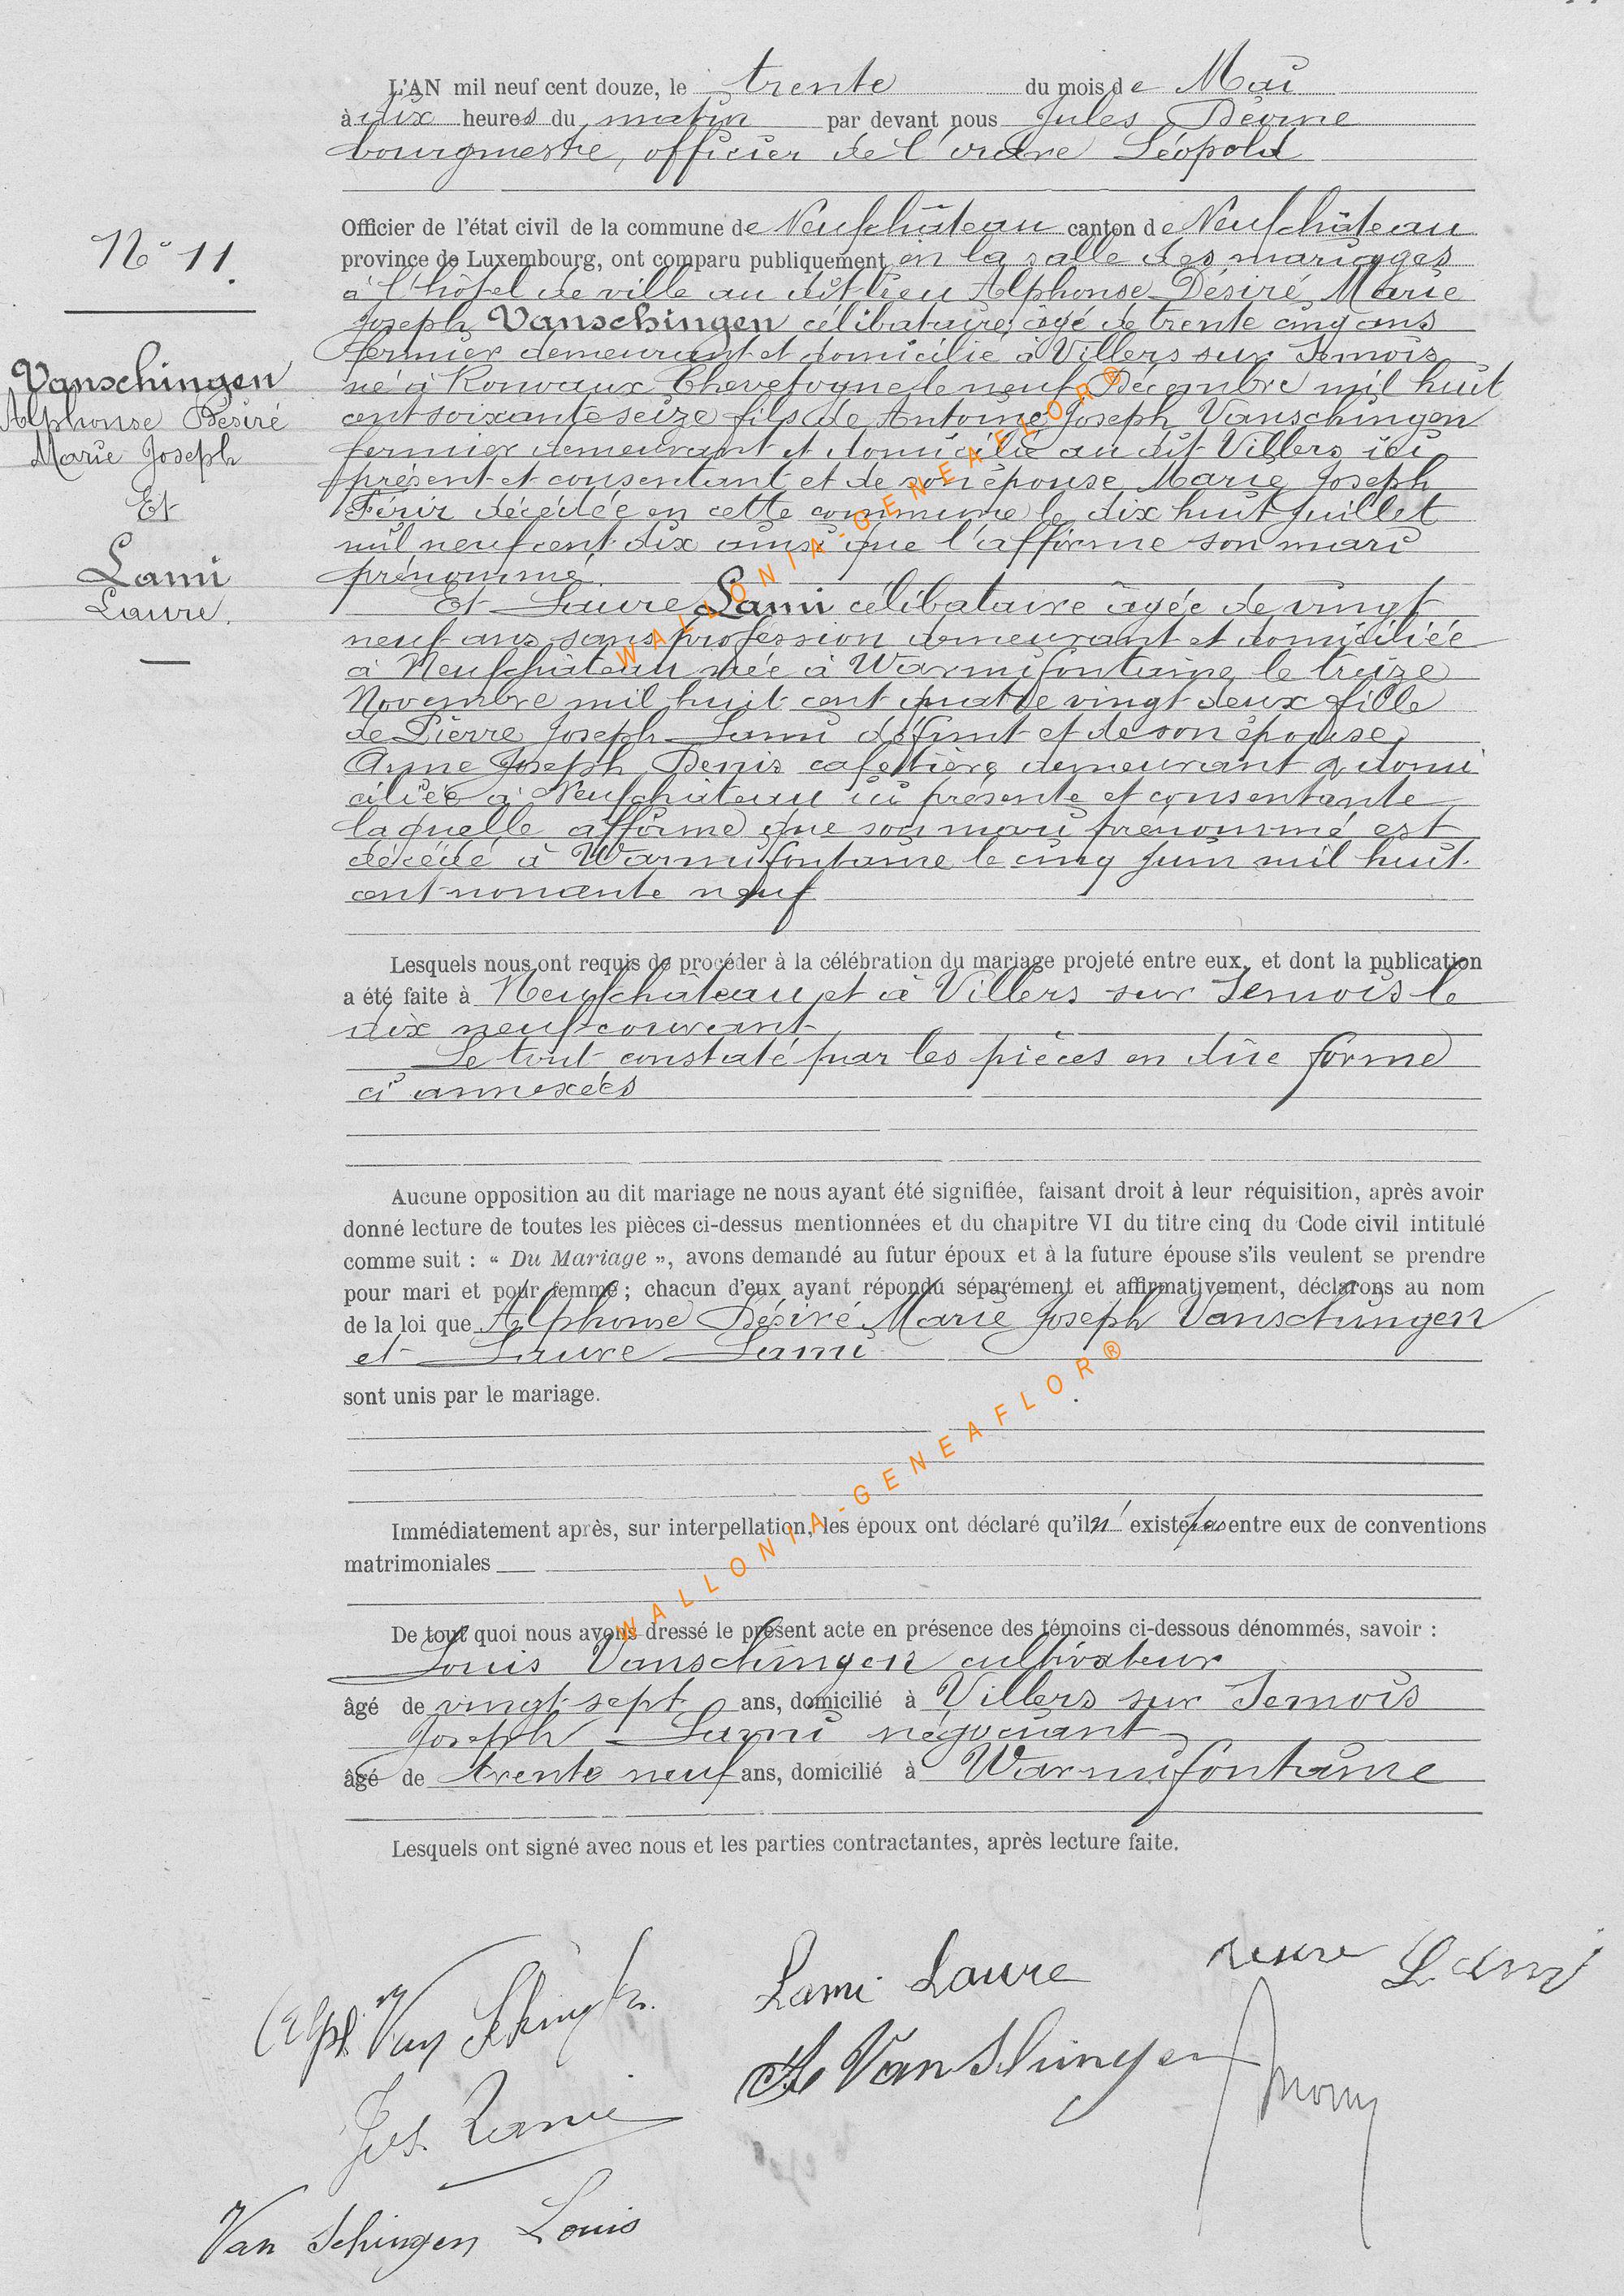 L'AN mil neuf cent douze, le trente du mois de Mai
à dix heures du matin par devant nous Jules
bourgmestre, officier de l'ordre Léopold
Officier de l'état civil de la commune de Neufchâteau canton de Neufchâteau
province de Luxembourg, ont comparu publiquement en la salle des mariages
N° 11.
à l'hôtel de ville au dit lieu Alphonse Désiré Marie
Joseph Vanschingen célibataire, âgé de trente cinq ans
fermier demeurant et domicilié à Villers sur Semois
Vanschingen
Alphonse Désiré
Marie Joseph
Et
Lami
Laure.
né à Ronvaux Chevetogne le neuf Décembre mil huit
cent soixante seize fils de Antoine Joseph Vanschingen
fermier demeurant et domicilié au dit Villers ici
présent et consentant et de son épouse Marie Joseph
Férir décédée en cette commune le dix huit Juillet
mil neuf cent dix ainsi que l'affirme son mari
prénommé.
Et Laure Lami célibataire âgée de vingt
neuf ans sans profession demeurant et domiciliée
à Neufchâteau née à Warmifontaine le treize
Novembre mil huit cent quatre vingt deux fille
de Pierre Joseph Lami défunt et de son épouse
Anne Joseph Denis cafetière demeurant & domi
ciliée à Neufchâteau ici présente et consentante
laquelle affirme que son mari prénommé est
décédé à Warmifontaine le cinq Juin mil huit
cent nonante neuf
Lesquels nous ont requis de procéder à la célébration du mariage projeté entre eux, et dont la publication
a été faite à Neufchâteau et à Villers sur Semois le
dix neuf courant
Le tout constaté par les pièces en dûe forme
ci annexées
Aucune opposition au dit mariage ne nous ayant été signifiée, faisant droit à leur réquisition, après avoir
donné lecture de toutes les pièces ci-dessus mentionnées et du chapitre VI du titre cinq du Code civil intitulé
comme suit : « Du Mariage », avons demandé au futur époux et à la future épouse s'ils veulent se prendre
pour mari et pour femme ; chacun d'eux ayant répondu séparément et affirmativement, déclarons au nom
de la loi que Alphonse Désiré Marie Joseph Vanschingen
et Laure Lami
sont unis par le mariage.
Immédiatement après, sur interpellation, les époux ont déclaré qu'il n' existe pas entre eux de conventions
matrimoniales
De tout quoi nous avons dressé le présent acte en présence des témoins ci-dessous dénommés, savoir :
Louis Vanschingen cultivateur
âgé de vingt sept ans, domicilié à Villers sur Semois
Joseph Lami négociant
âgé de trente neuf ans, domicilié à Warmifontaine
Lesquels ont signé avec nous et les parties contractantes, après lecture faite.
Alph. Van Schingen
Lami Laure
Lami
Van Schingen
Jos. Lami
Van Schingen Louis
WALLONIA-GENEAFLOR®
WALLONIA-GENEAFLOR®